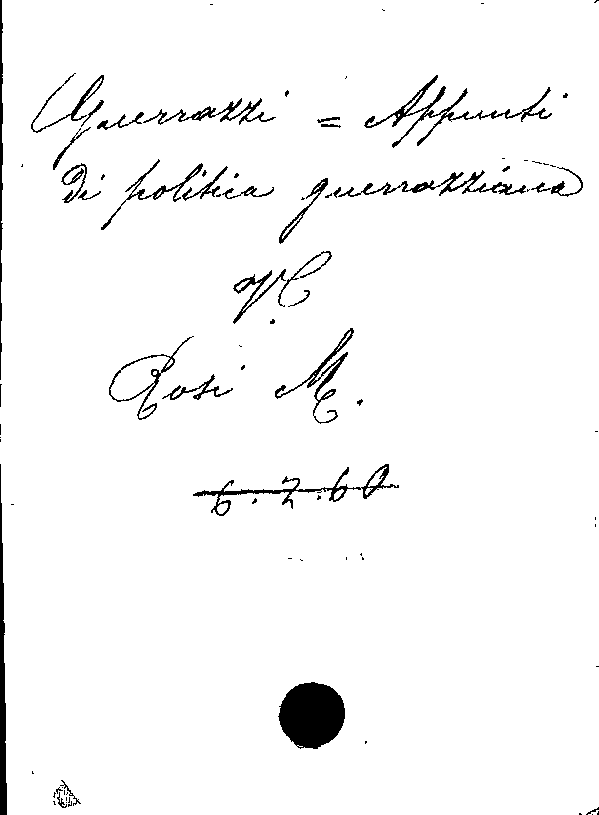 Guerrazzi = Appunti
di politica guerrazziana
V. C
Rosi M.
6.2.60